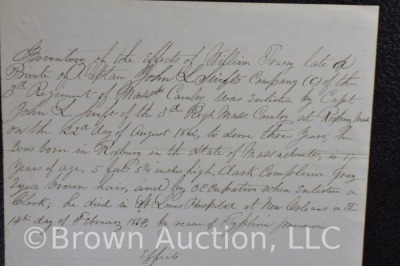 Inventory of the Effects of William Tracy late a
Private of Captain John L Swifts Company (C) of the
3rd Regiment of Masstts Cavalry was enlisted by Capt
John L. Swift of the 3rd Regt Mass. Cavalry at Roxbury Mass
on the 22nd day of August 1862 to serve three years, he
was born in Roxbury in the State of Massachusetts, is 19
Years of age, 5 feet 5¾ inches high, dark Complexion Gray
Eyes brown hair, and by occupation when Enlisted a
Clerk, he died in St Louis Hospital at New Orleans on the
14th day of February 1864, by reason of Typhoid pneumonia
Effects
©Brown Auction, LLC